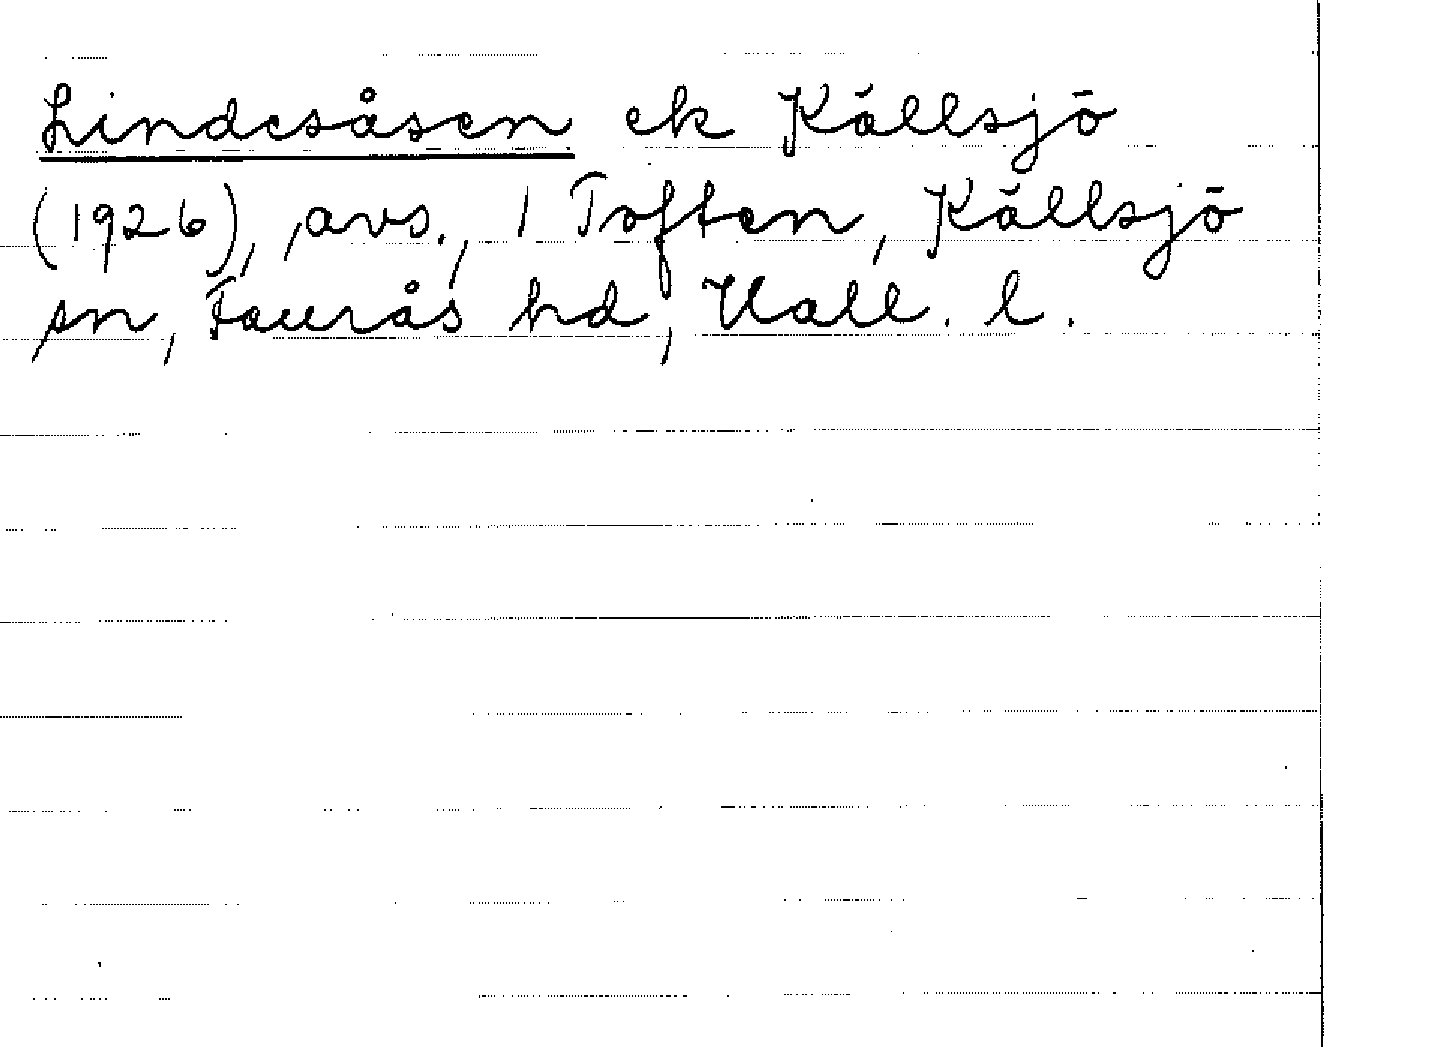 Lindesåsen ek Källsjö
(1926), avs., 1 Toften, Källsjö
sn, Faurås hd, Hall. l.